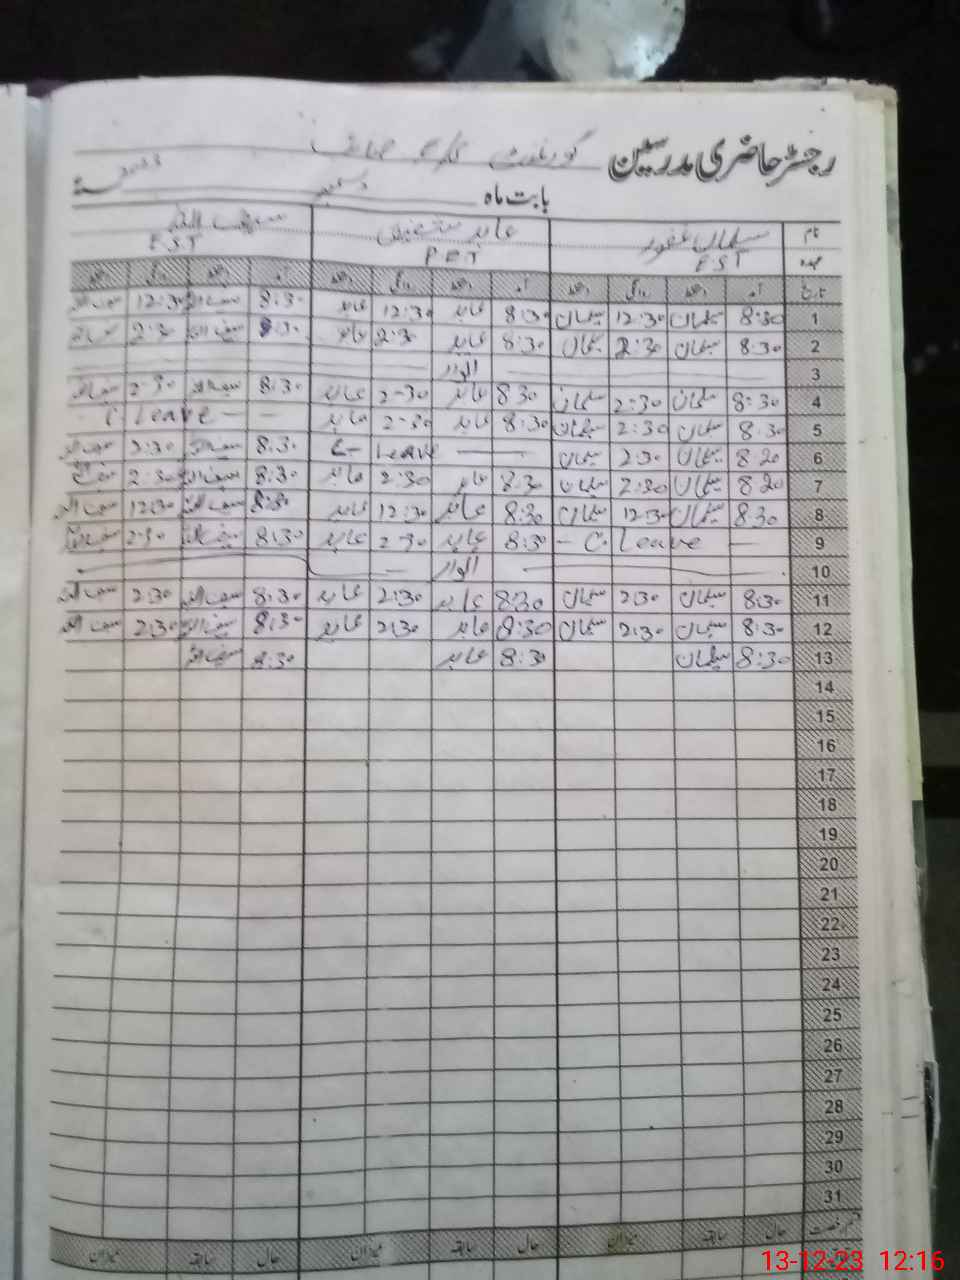 رجسٹر حاضری مدرسین گورنمنٹ
بابت ماہ دسمبر
نام سلمان غفور عابد سیف اللہ
عہدہ EST PET EST
تاریخ آمد دستخط روانگی دستخط آمد دستخط روانگی دستخط آمد دستخط روانگی دستخط
1 8:30 سلمان 12:30 سلمان 8:30 عابد 12:30 عابد 8:30 سیف اللہ 12:30 سیف اللہ
2 8:30 سلمان 2:30 سلمان 8:30 عابد 2:30 عابد 8:30 سیف اللہ 2:30 سیف اللہ
3 اتوار
4 8:30 سلمان 2:30 سلمان 8:30 عابد 2-30 عابد 8:30 سیف اللہ 2-30 سیف اللہ
5 8:30 سلمان 2:30 سلمان 8:30 عابد 2-30 عابد - C Leave -
6 8:30 سلمان 2:30 سلمان C- Leave 8:30 سیف اللہ 2:30 سیف اللہ
7 8:30 سلمان 2:30 سلمان 8:30 عابد 2:30 عابد 8:30 سیف اللہ 2:30 سیف اللہ
8 8:30 سلمان 12:30 سلمان 8:30 عابد 12:30 عابد 8:30 سیف اللہ 12:30 سیف اللہ
9 - C. Leave - 8:30 عابد 2-30 عابد 8:30 سیف اللہ 2-30 سیف اللہ
10 اتوار
11 8:30 سلمان 2:30 سلمان 8:30 عابد 2:30 عابد 8:30 سیف اللہ 2:30 سیف اللہ
12 8:30 سلمان 2:30 سلمان 8:30 عابد 2:30 عابد 8:30 سیف اللہ 2:30 سیف اللہ
13 8:30 سلمان 8:30 عابد 8:30 سیف اللہ
14
15
16
17
18
19
20
21
22
23
24
25
26
27
28
29
30
31
قسم رخصت حال سابقہ میزان حال سابقہ میزان حال سابقہ میزان
13-12-23 12:16